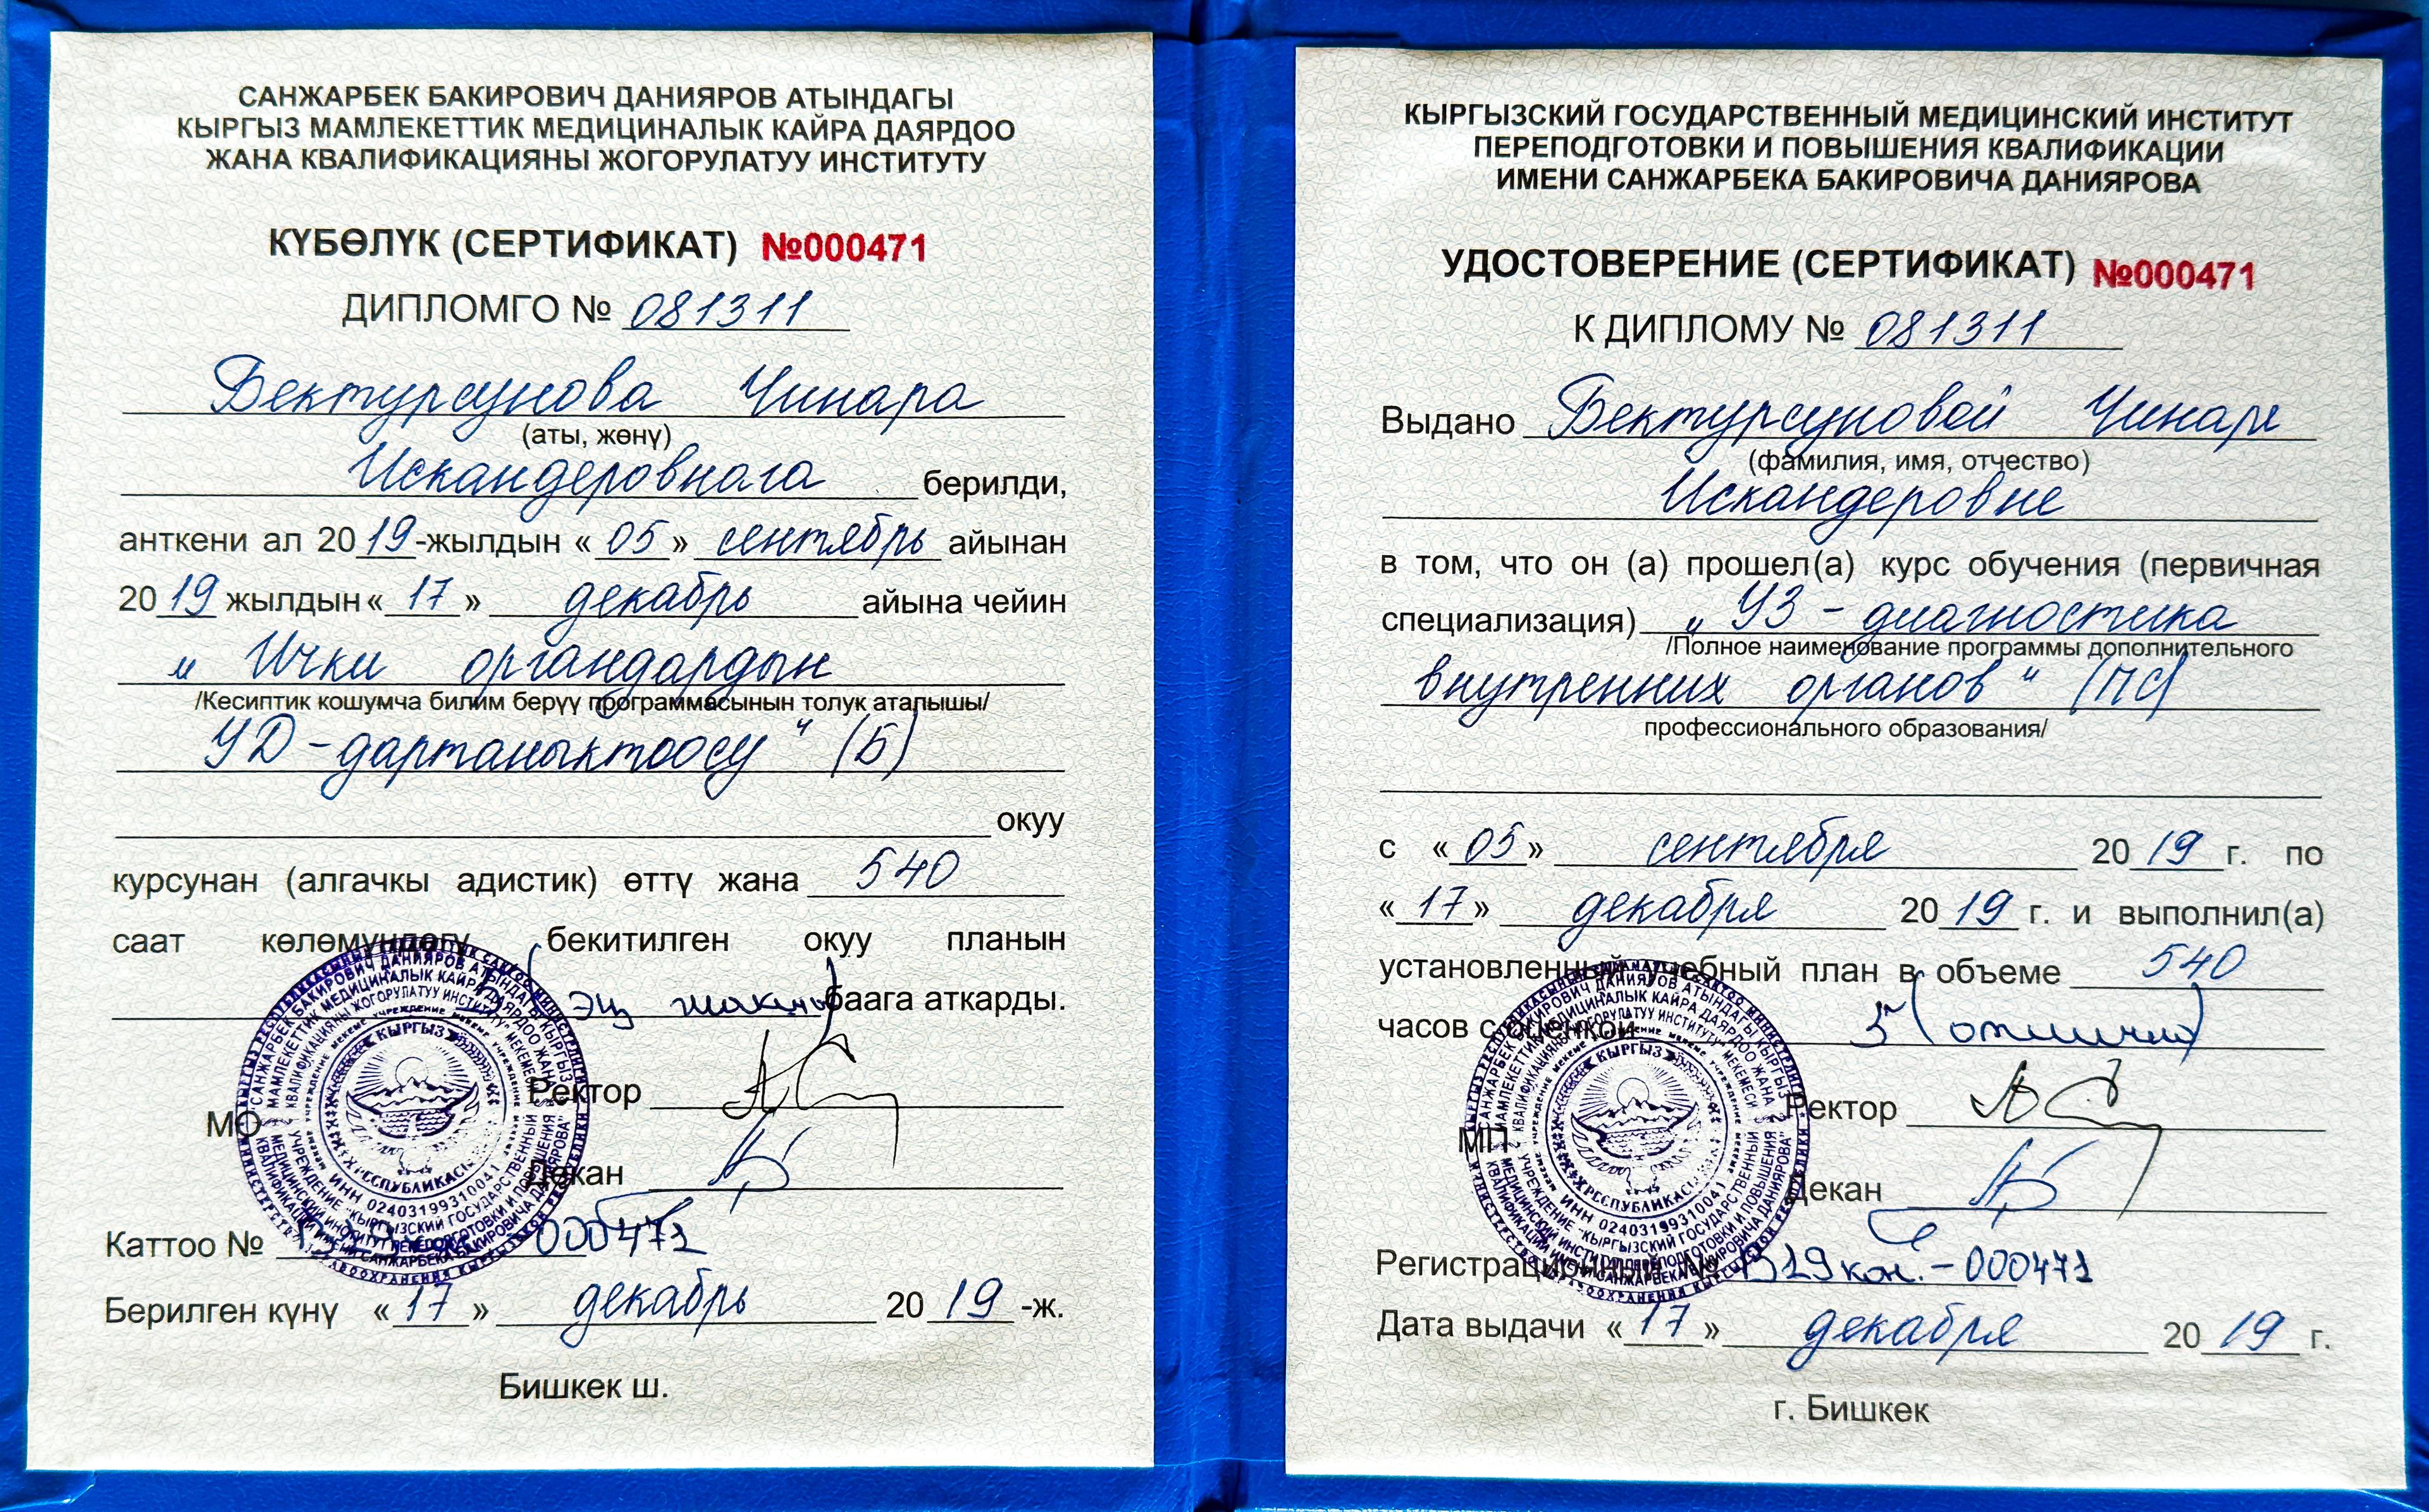 САНЖАРБЕК БАКИРОВИЧ ДАНИЯРОВ АТЫНДАГЫ
КЫРГЫЗ МАМЛЕКЕТТИК МЕДИЦИНАЛЫК КАЙРА ДАЯРДОО
ЖАНА КВАЛИФИКАЦИЯНЫ ЖОГОРУЛАТУУ ИНСТИТУТУ
КҮБӨЛҮК (СЕРТИФИКАТ) №000471
ДИПЛОМГО № 081311
Бектурсунова Чинара
(аты, жөнү)
Искандеровнага берилди,
анткени ал 2019-жылдын «05» сентябрь айынан
2019 жылдын «17» декабрь айына чейин
„Ички органдардын
/Кесиптик кошумча билим берүү программасынын толук аталышы/
УД-дартаныктоосу“ (Б)
окуу
курсунан (алгачкы адистик) өттү жана 540
саат көлөмүндөгү бекитилген окуу планын
5 (эң жакшы) баага аткарды.
Ректор
МО
Декан
Каттоо № 000471
Берилген күнү «17» декабрь 2019-ж.
Бишкек ш.
КЫРГЫЗСКИЙ ГОСУДАРСТВЕННЫЙ МЕДИЦИНСКИЙ ИНСТИТУТ
ПЕРЕПОДГОТОВКИ И ПОВЫШЕНИЯ КВАЛИФИКАЦИИ
ИМЕНИ САНЖАРБЕКА БАКИРОВИЧА ДАНИЯРОВА
УДОСТОВЕРЕНИЕ (СЕРТИФИКАТ) №000471
К ДИПЛОМУ № 081311
Выдано Бектурсуновой Чинаре
(фамилия, имя, отчество)
Искандеровне
в том, что он (а) прошел(а) курс обучения (первичная
специализация) „УЗ-диагностика
/Полное наименование программы дополнительного
внутренних органов“ (ПС)
профессионального образования/
с «05» сентября 2019 г. по
«17» декабря 2019 г. и выполнил(а)
установленный учебный план в объеме 540
часов с оценкой 5 (отлично)
Ректор
МП
Декан
Регистрационный № В19кон.-000471
Дата выдачи «17» декабря 2019 г.
г. Бишкек